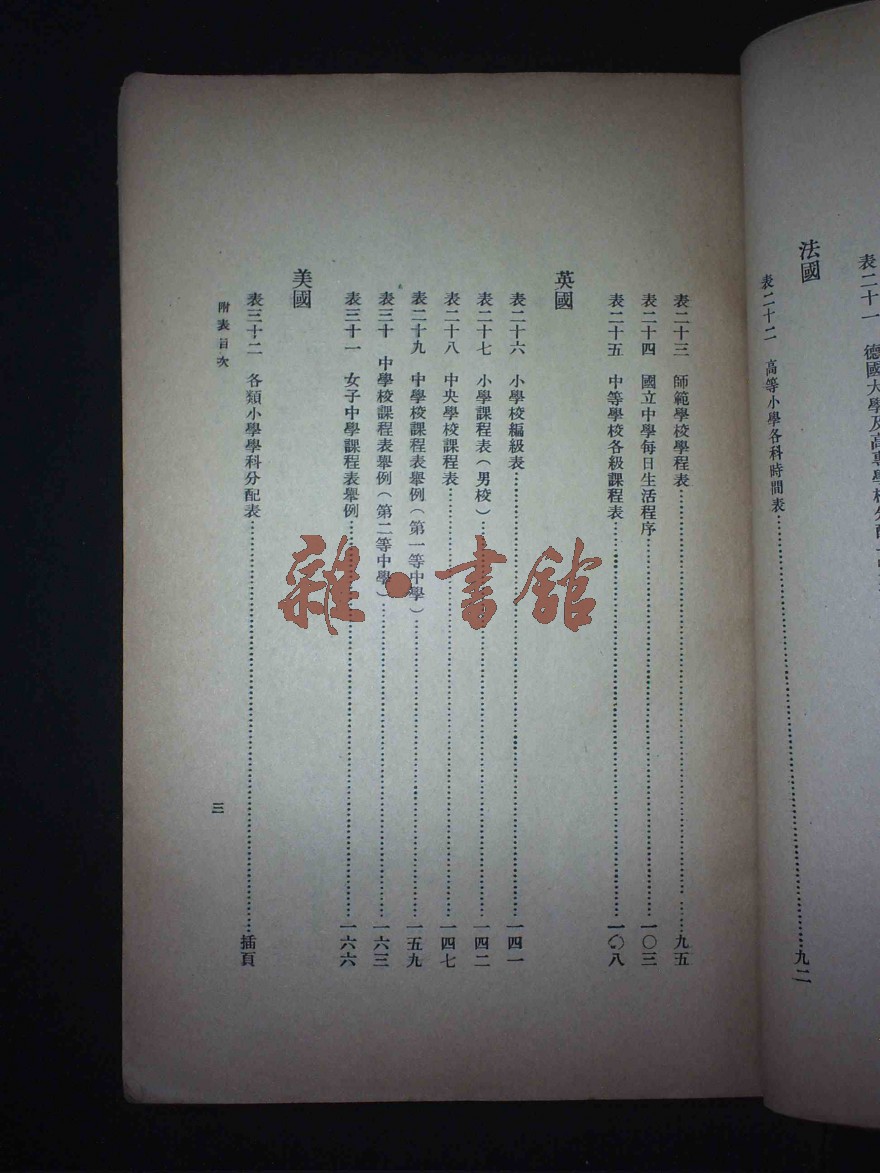 表二十一 德國大學及高專學校分配
法國
表二十二 高等小學各科時間表……九二
表二十三 師範學校學程表……九五
表二十四 國立中學每日生活程序……一〇三
表二十五 中等學校各級課程表……一〇八
英國
表二十六 小學校編級表……一四一
表二十七 小學課程表(男校)……一四二
表二十八 中央學校課程表……一四七
表二十九 中學校課程表舉例(第一等中學)……一五九
表三十 中學校課程表舉例(第二等中學)……一六三
表三十一 女子中學課程表舉例……一六六
美國
表三十二 各類小學學科分配表……插頁
附表目次
三
雜·書館